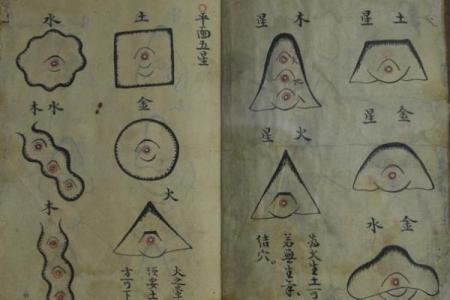 土星
金星
金水
木星
火星
火生土可
若無生氣
結穴。
平面五星
土
金
火
火之
須安土
方可下
水
水木
木